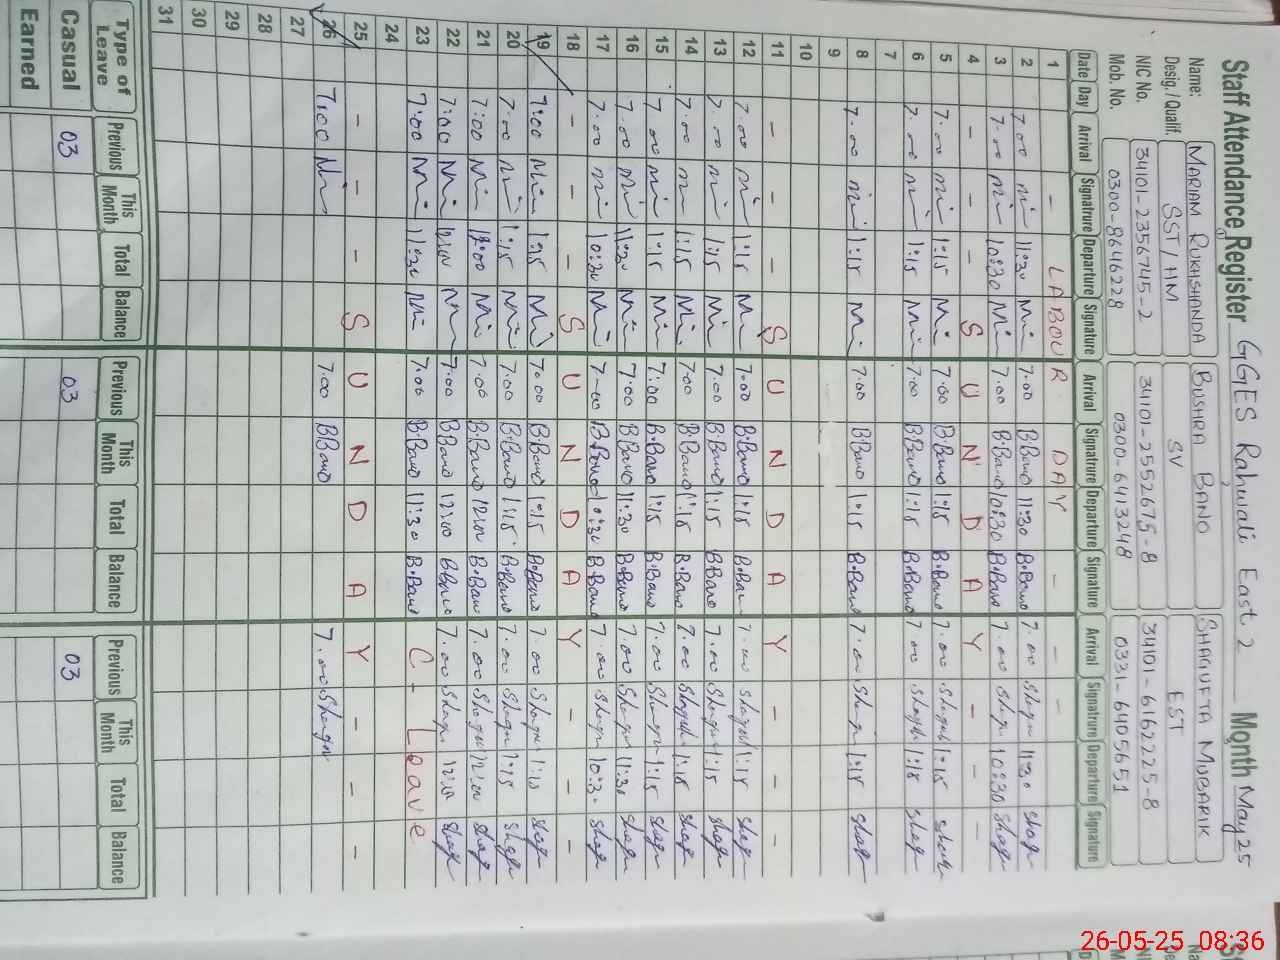 Staff Attendance Register GGES Rahwali East 2 Month May 25
Name: MARIAM RUKHSHANDA BUSHRA BANO SHAGUFTA MUBARIK
Desig./ Qualif. SST/HM SV EST
NIC No. 34101-2356745-2 34101-2552675-8 34101-6162225-8
Mob. No. 0300-8646228 0300-6413248 0331-6405651
Date Day Arrival Signatrure Departure Signature Arrival Signatrure Departure Signature Arrival Signatrure Departure Signature
1 - LABOUR DAY - - -
2 7.00 11:30 7.00 B.Bano 11:30 B.Bano 7.00 11:30
3 7.00 10:30 7.00 B.Bano 10:30 B.Bano 7.00 10:30
4 - - - S U N D A Y - -
5 7.00 1:15 7.00 B.Bano 1:15 B.Bano 7.00 1:15
6 7.00 1:15 7.00 B.Bano 1:15 B.Bano 7.00 1:15
7
8 7.00 1:15 7.00 B.Bano 1:15 B.Bano 7.00 1:15
9
10
11 - - - S U N D A Y - - -
12 7.00 1:15 7.00 B.Bano 1:15 B.Bano 7.00 1:15
13 7.00 1:15 7.00 B.Bano 1:15 B.Bano 7.00 1:15
14 7.00 1:15 7.00 B.Bano 1:15 B.Bano 7.00 1:15
15 7.00 1:15 7:00 B.Bano 1:15 B.Bano 7.00 1:15
16 7.00 11:30 7:00 B.Bano 11:30 B.Bano 7.00 11:30
17 7.00 10:30 7.00 B.Bano 10:30 B.Bano 7.00 10:30
18 - - - S U N D A Y - - -
19 7:00 1:15 7.00 B.Bano 1:15 B.Bano 7.00 1:15
20 7.00 1:15 7.00 B.Bano 1:15 B.Bano 7.00 1:15
21 7:00 12:00 7.00 B.Bano 12:00 B.Bano 7.00 12:00
22 7:00 12:00 7.00 B.Bano 12:00 B.Bano 7.00
23 7:00 11:30 7.00 B.Bano 11:30 B.Bano C-Leave
24
25 - - - S U N D A Y - - -
26 7:00 7.00 B.Bano 7.00
27
28
29
30
31
Type of Leave Previous This Month Total Balance Previous This Month Total Balance Previous This Month Total Balance
Casual 03 03 03
Earned
26-05-25 08:36